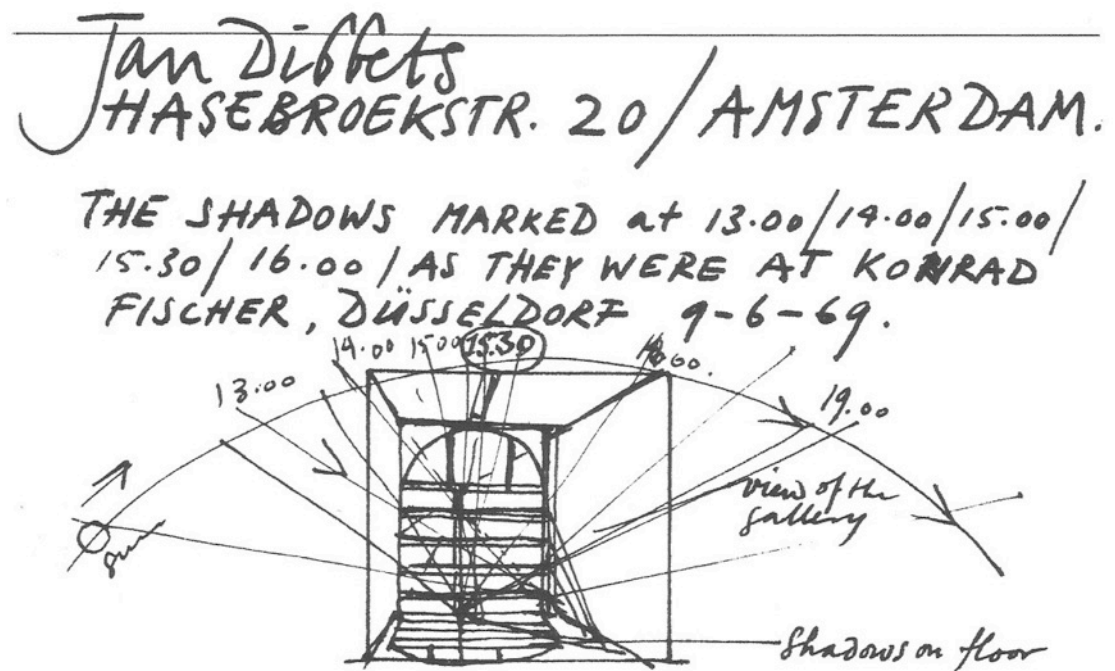 Jan Dibbets
HASEBROEKSTR. 20 / AMSTERDAM.
THE SHADOWS MARKED at 13.00/14.00/15.00/
15.30/ 16.00 / AS THEY WERE AT KONRAD
FISCHER, DÜSSELDORF 9-6-69.
14.00 15.00 15.30
13.00
19.00
view of the
gallery
sun
shadows on floor